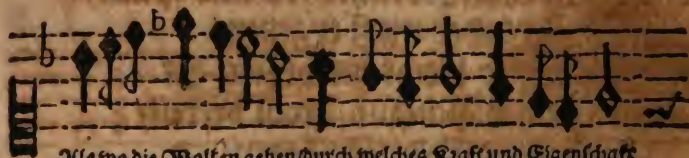 Als wo die Wolken gehen/durch welches Krafft und Eigenschafft